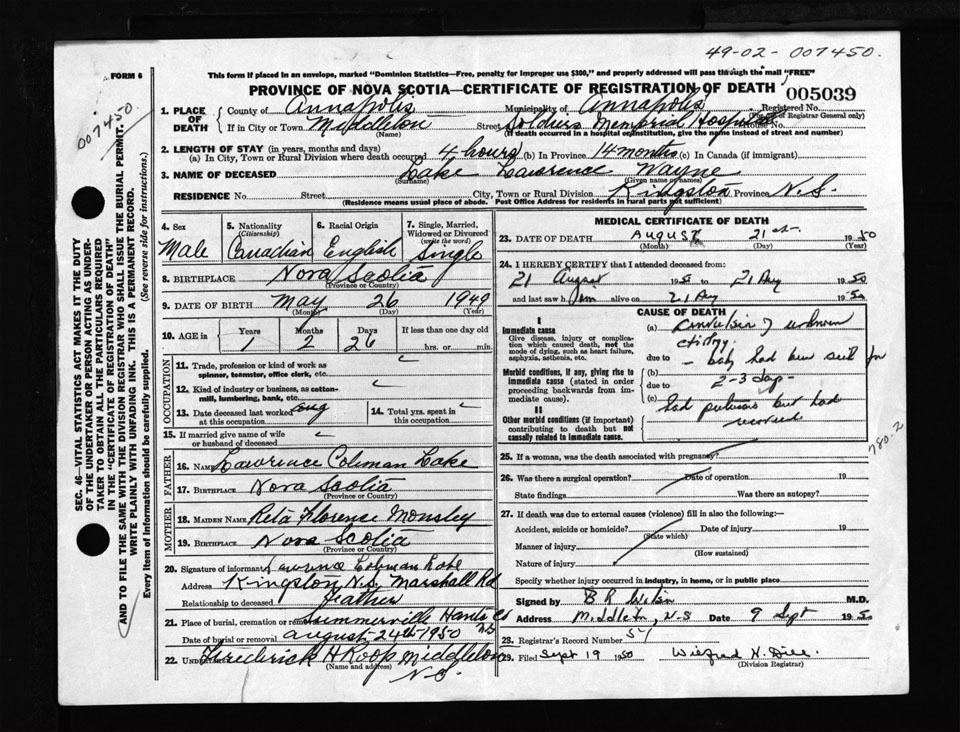 49-02-007450.
FORM 6
This form if placed in an envelope, marked "Dominion Statistics—Free, penalty for improper use $300," and properly addressed will pass through the mail "FREE"
PROVINCE OF NOVA SCOTIA—CERTIFICATE OF REGISTRATION OF DEATH
005039
007450
1. PLACE OF DEATH
County of Annapolis Municipality of Annapolis Registered No.
(For use of Registrar General only)
If in City or Town Middleton Street Soldiers Memorial Hospital House No.
(Name) (If death occurred in a hospital or institution, give the name instead of street and number)
2. LENGTH OF STAY (in years, months and days)
(a) In City, Town or Rural Division where death occurred 4 hours (b) In Province 14 months (c) In Canada (if immigrant)
3. NAME OF DECEASED Lake Lawrence Wayne
(Surname) (Given name or names)
RESIDENCE No. Street City, Town or Rural Division Kingston Province N.S.
(Residence means usual place of abode. Post Office Address for residents in rural parts not sufficient)
4. Sex
Male
5. Nationality (Citizenship)
Canadian
6. Racial Origin
English
7. Single, Married, Widowed or Divorced (write the word)
Single
8. BIRTHPLACE Nova Scotia
(Province or Country)
9. DATE OF BIRTH May 26 1949
(Month) (Day) (Year)
10. AGE in Years Months Days If less than one day old
1 2 26 hrs. or min.
OCCUPATION
11. Trade, profession or kind of work as
spinner, teamster, office clerk, etc.
12. Kind of industry or business, as cotton-
mill, lumbering, bank, etc.
13. Date deceased last worked
at this occupation
14. Total yrs. spent in
this occupation
15. If married give name of wife
or husband of deceased
FATHER
16. NAME Lawrence Coleman Lake
17. BIRTHPLACE Nova Scotia
(Province or Country)
MOTHER
18. MAIDEN NAME Reta Florence
19. BIRTHPLACE Nova Scotia
(Province or Country)
20. Signature of informant Lawrence Coleman Lake
Address Kingston N.S. Marshall Rd
Relationship to deceased Feather
21. Place of burial, cremation or removal Summerville Hants Co N.S.
Date of burial or removal August 24th 1950
22. UNDERTAKER Frederick H Roop Middleton
(Name and address)
N.S.
MEDICAL CERTIFICATE OF DEATH
23. DATE OF DEATH August 21st 1950
(Month) (Day) (Year)
24. I HEREBY CERTIFY that I attended deceased from:
21 August 1950 to 21 Aug 1950
and last saw him alive on 21 Aug 1950
CAUSE OF DEATH
I
Immediate cause
Give disease, injury or complication which caused death, not the mode of dying, such as heart failure, asphyxia, asthenia, etc.
Morbid conditions, if any, giving rise to immediate cause (stated in order proceeding backwards from immediate cause).
II
Other morbid conditions (if important) contributing to death but not causally related to immediate cause.
(a) Convulsion of unknown
etiology.
due to - baby had been sick for
(b)
due to 2-3 days -
(c)
had pertussis but had
recovered
780.2
25. If a woman, was the death associated with pregnancy?
26. Was there a surgical operation? Date of operation 19
State findings Was there an autopsy?
27. If death was due to external causes (violence) fill in also the following:—
Accident, suicide or homicide? Date of injury 19
(State which)
Manner of injury
(How sustained)
Nature of injury
Specify whether injury occurred in industry, in home, or in public place
Signed by B R Wilson M.D.
Address Middleton, N-S Date 9 Sept 1950
28. Registrar's Record Number 54
29. Filed Sept 19 1950 Wilfred N. Dill.
(Division Registrar)
SEC. 46—VITAL STATISTICS ACT MAKES IT THE DUTY
OF THE UNDERTAKER OR PERSON ACTING AS UNDER-
TAKER TO OBTAIN ALL THE PARTICULARS REQUIRED
IN THE "CERTIFICATE OF REGISTRATION OF DEATH"
AND TO FILE THE SAME WITH THE DIVISION REGISTRAR WHO SHALL ISSUE THE BURIAL PERMIT.
WRITE PLAINLY WITH UNFADING INK. THIS IS A PERMANENT RECORD.
Every item of information should be carefully supplied. (See reverse side for instructions.)